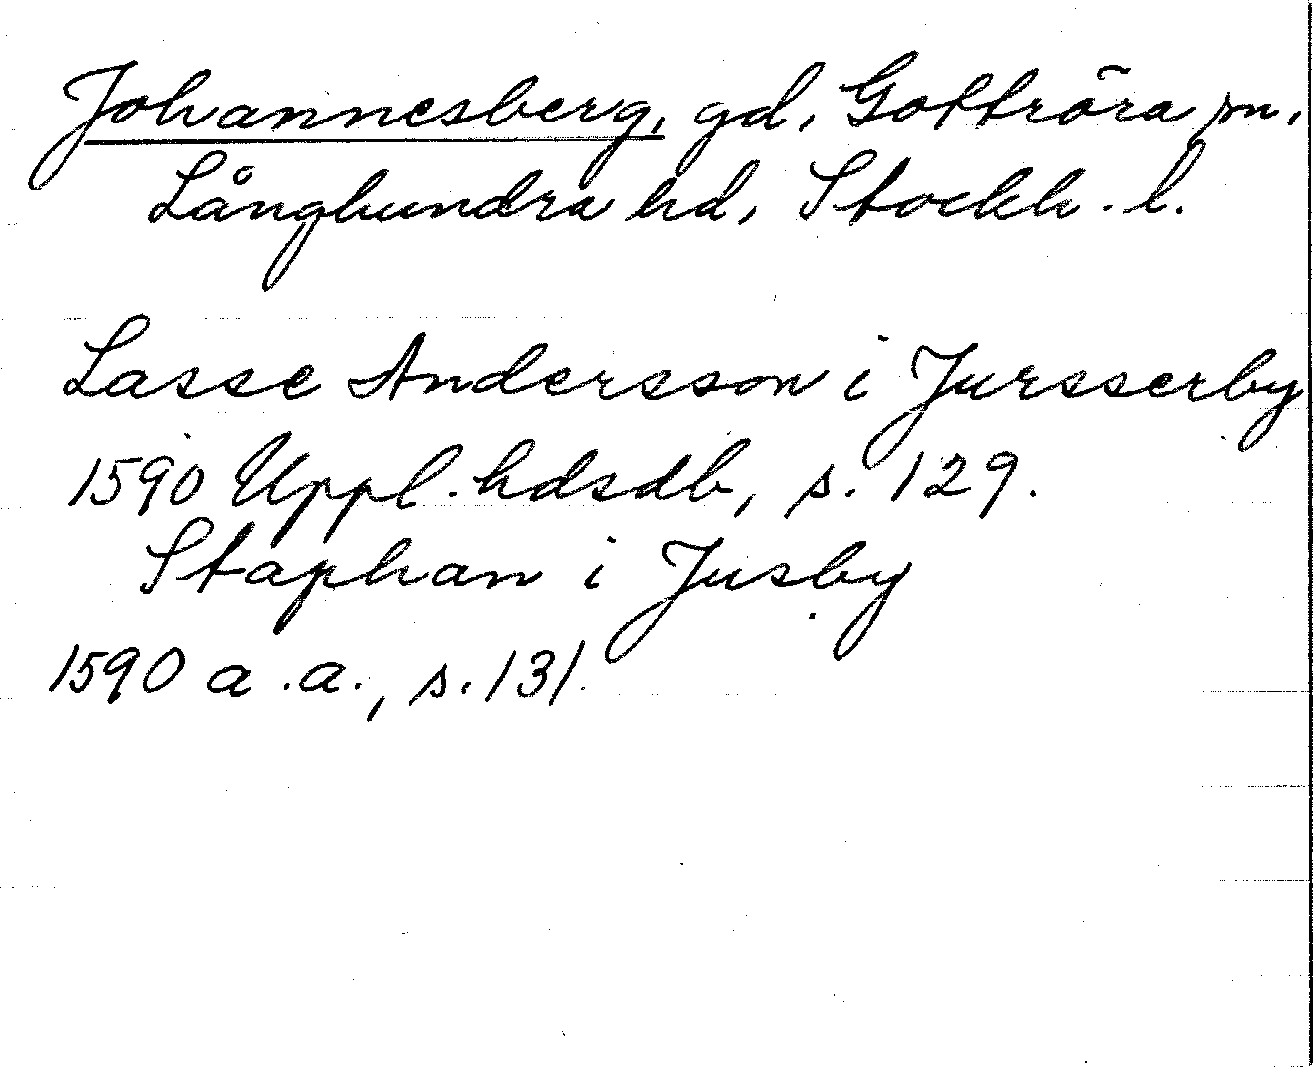 Johannesberg, gd, Gottröra sn,
Långhundra hd, Stockh. l.
Lasse Andersson i Jursserby
1590 Uppl. hdsdb, s. 129.
Staphan i Jusby
1590 a.a., s. 131.